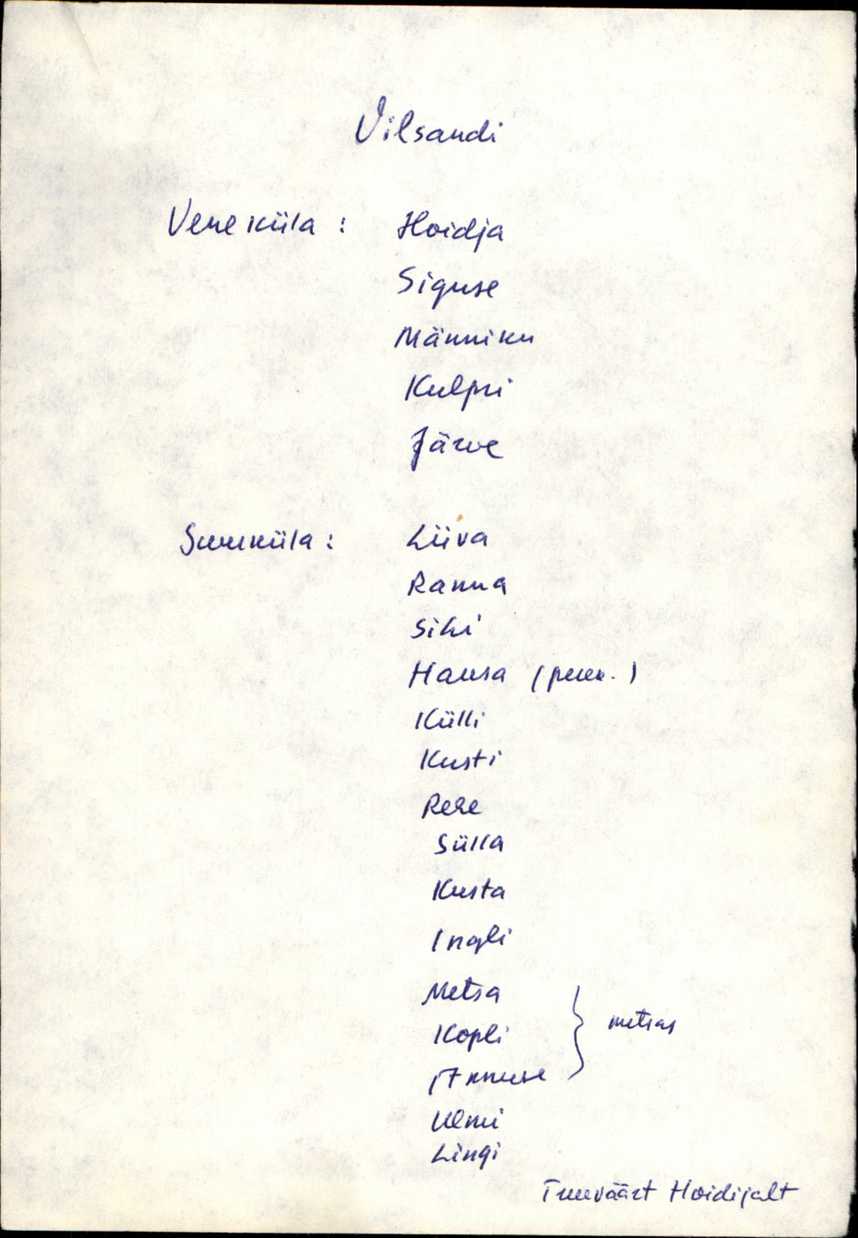 Vilsandi
Vereküla : Hoidja
Siguse
Männiku
Kulpri
Järve
Suureküla : Liiva
Ranna
Sihi
Hansa (peren.)
Külli
Kusti
Rehe
Sülla
Kusta
Ingli
Metsa
Kopli } metsas
Annuse
Ulmi
Lingi
Truuväärt Hoidijalt